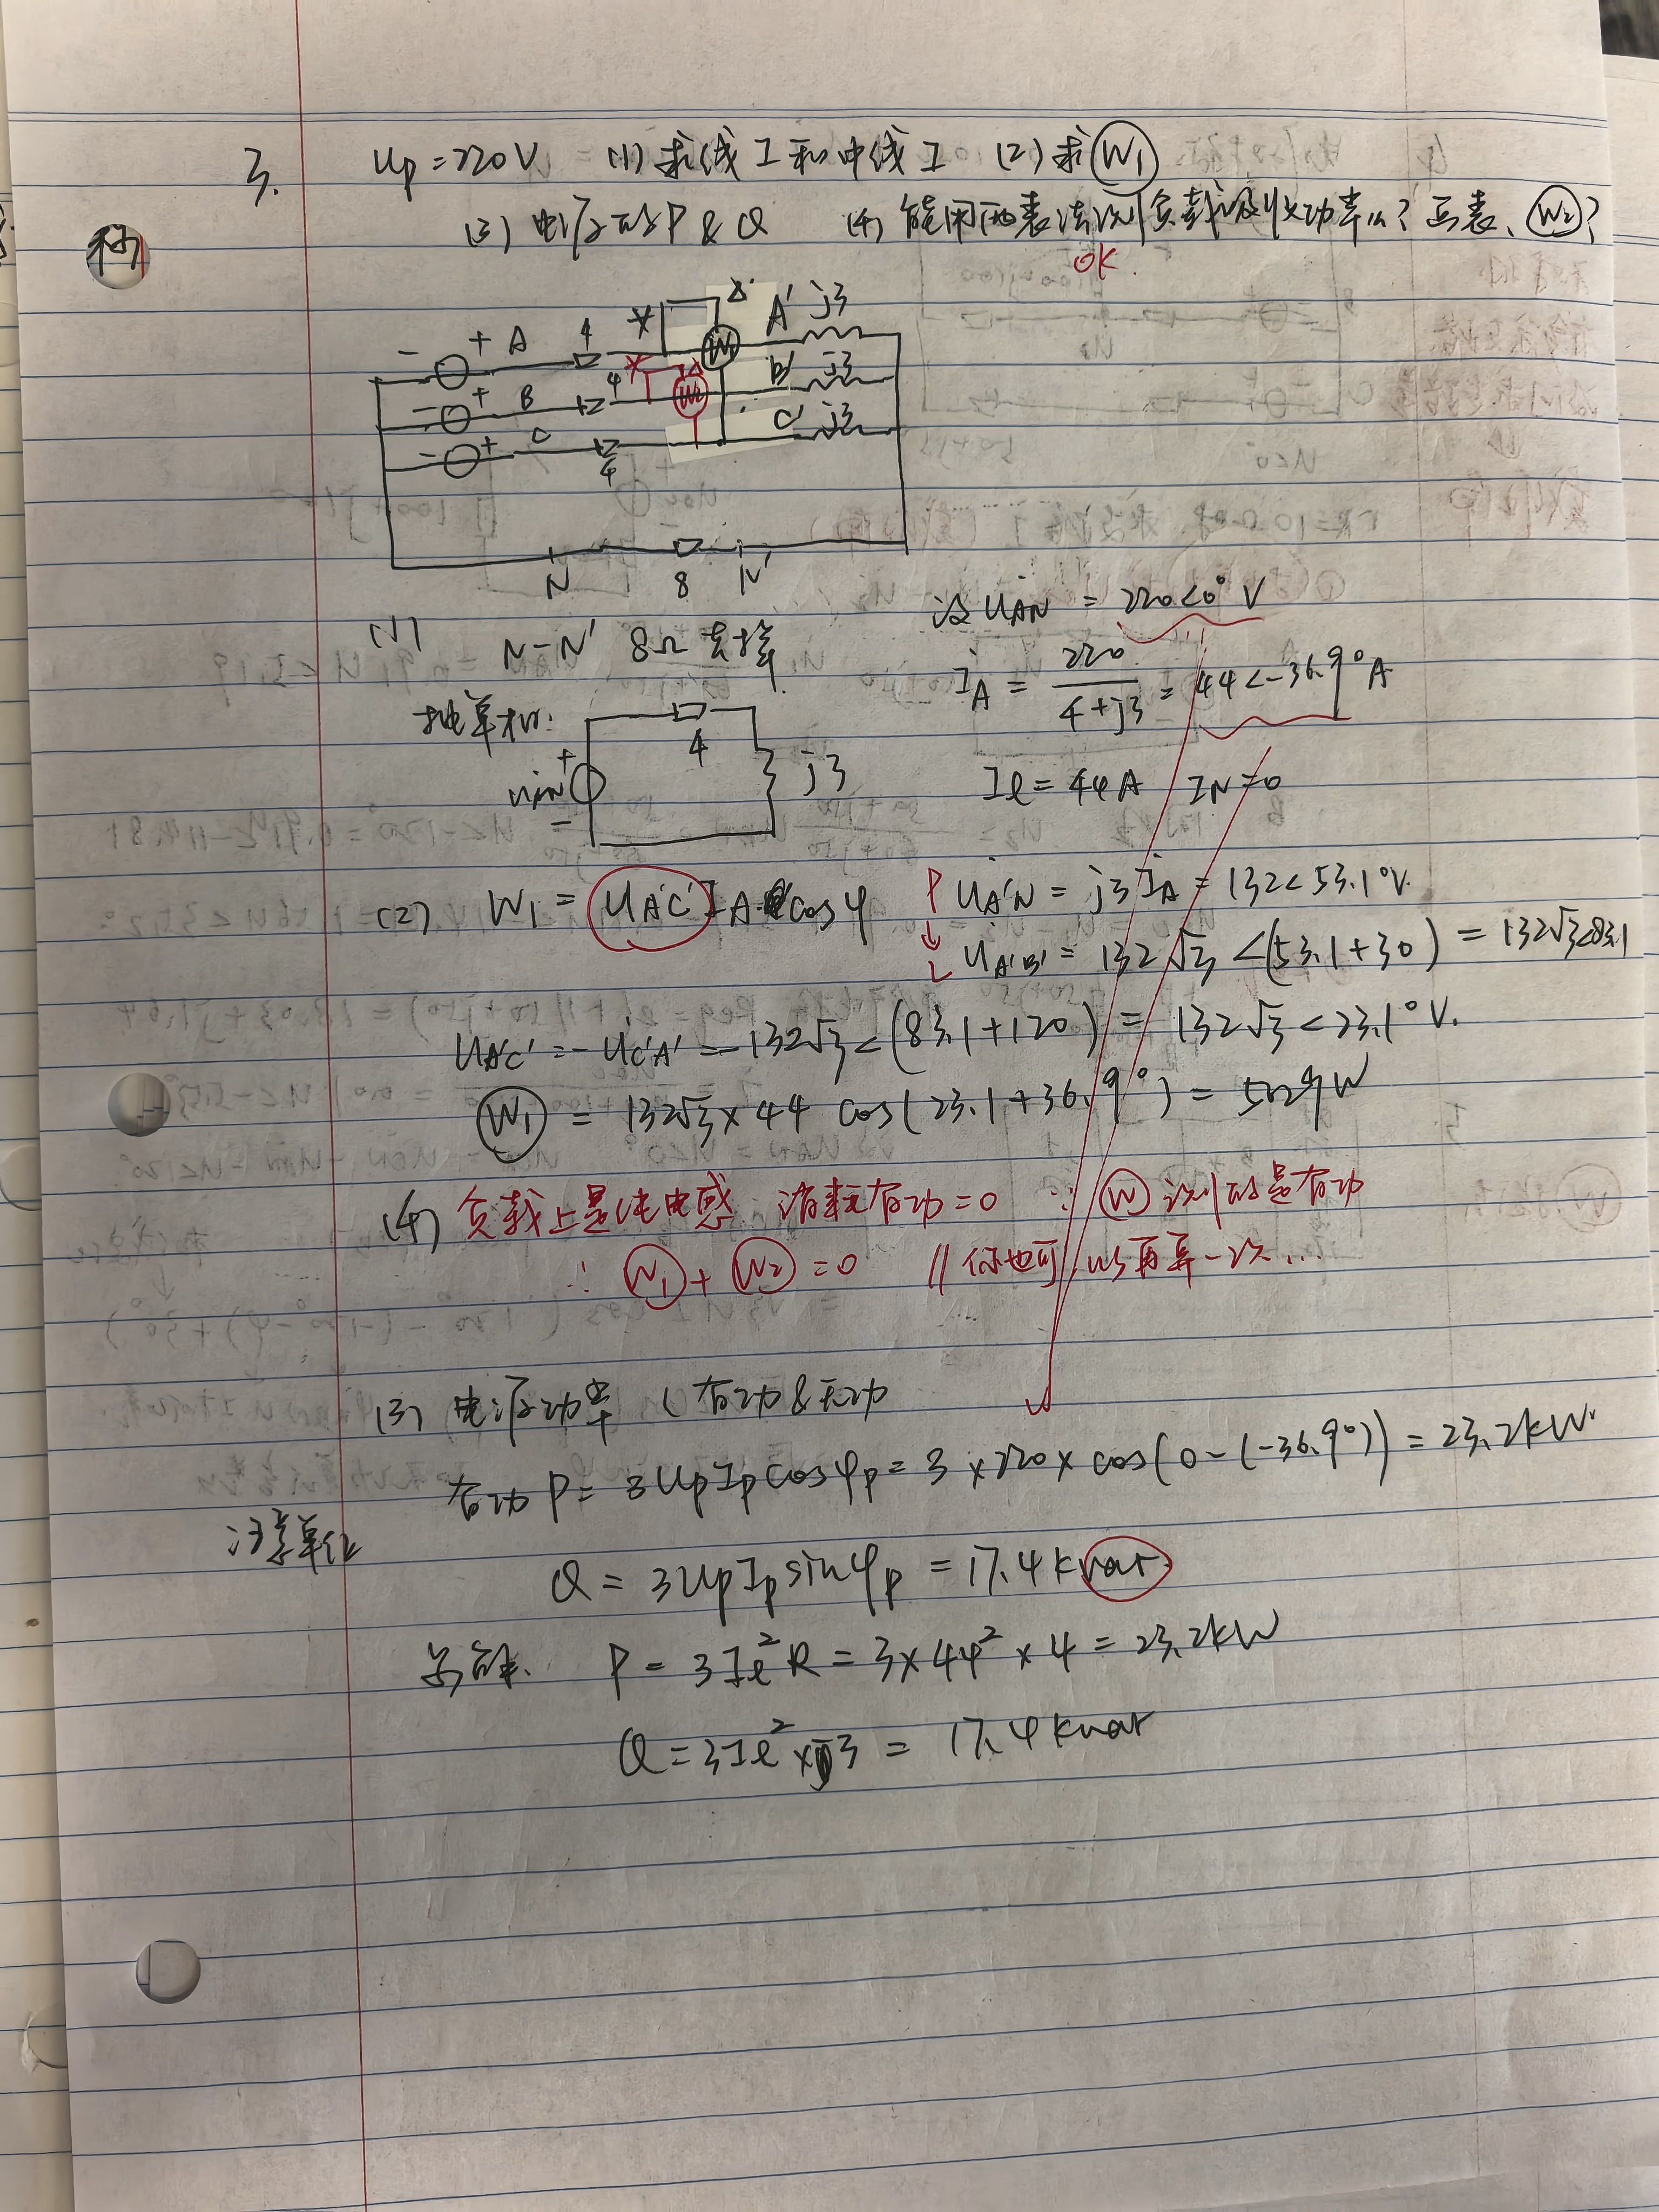 3. Up=220V (1) 求线I和中线I (2) 求W₁
(3) 电源的P & Q (4) 能用两表法测负载吸收功率么? 画表、W₂?
OK
- + A 4 * W₁ A' j3
- + B 4 * W₂ B' j3
- + C 4 C' j3
N 8 N'
(1) N-N' 8Ω去掉
抽单相:
+ 4
uAN j3
-
设U̇AN = 220<0° V
İA = 220/(4+j3) = 44<-36.9° A
Iℓ = 44A IN=0
(2) W₁ = UA'C' IA cosφ
P U̇A'N = j3İA = 132<53.1°V.
↓
L U̇A'B' = 132√3 <(53.1+30) = 132√3<83.1
U̇A'C' = -U̇C'A' = -132√3<(83.1+120) = 132√3<23.1° V.
W₁ = 132√3×44 cos(23.1+36.9°) = 5029W
(4) 负载上是纯电感 消耗有功=0 ∵ W 测的是有功
∴ W₁ + W₂ = 0 // 你也可以再算一次...
(3) 电源功率 (有功&无功
有功 P = 3UpIpcosφp = 3×220×cos(0-(-36.9°)) = 23.2kW
注意单位
Q = 3UpIpsinφp = 17.4kvar
另解. P = 3Iℓ²R = 3×44²×4 = 23.2kW
Q = 3Iℓ²×3 = 17.4kvar